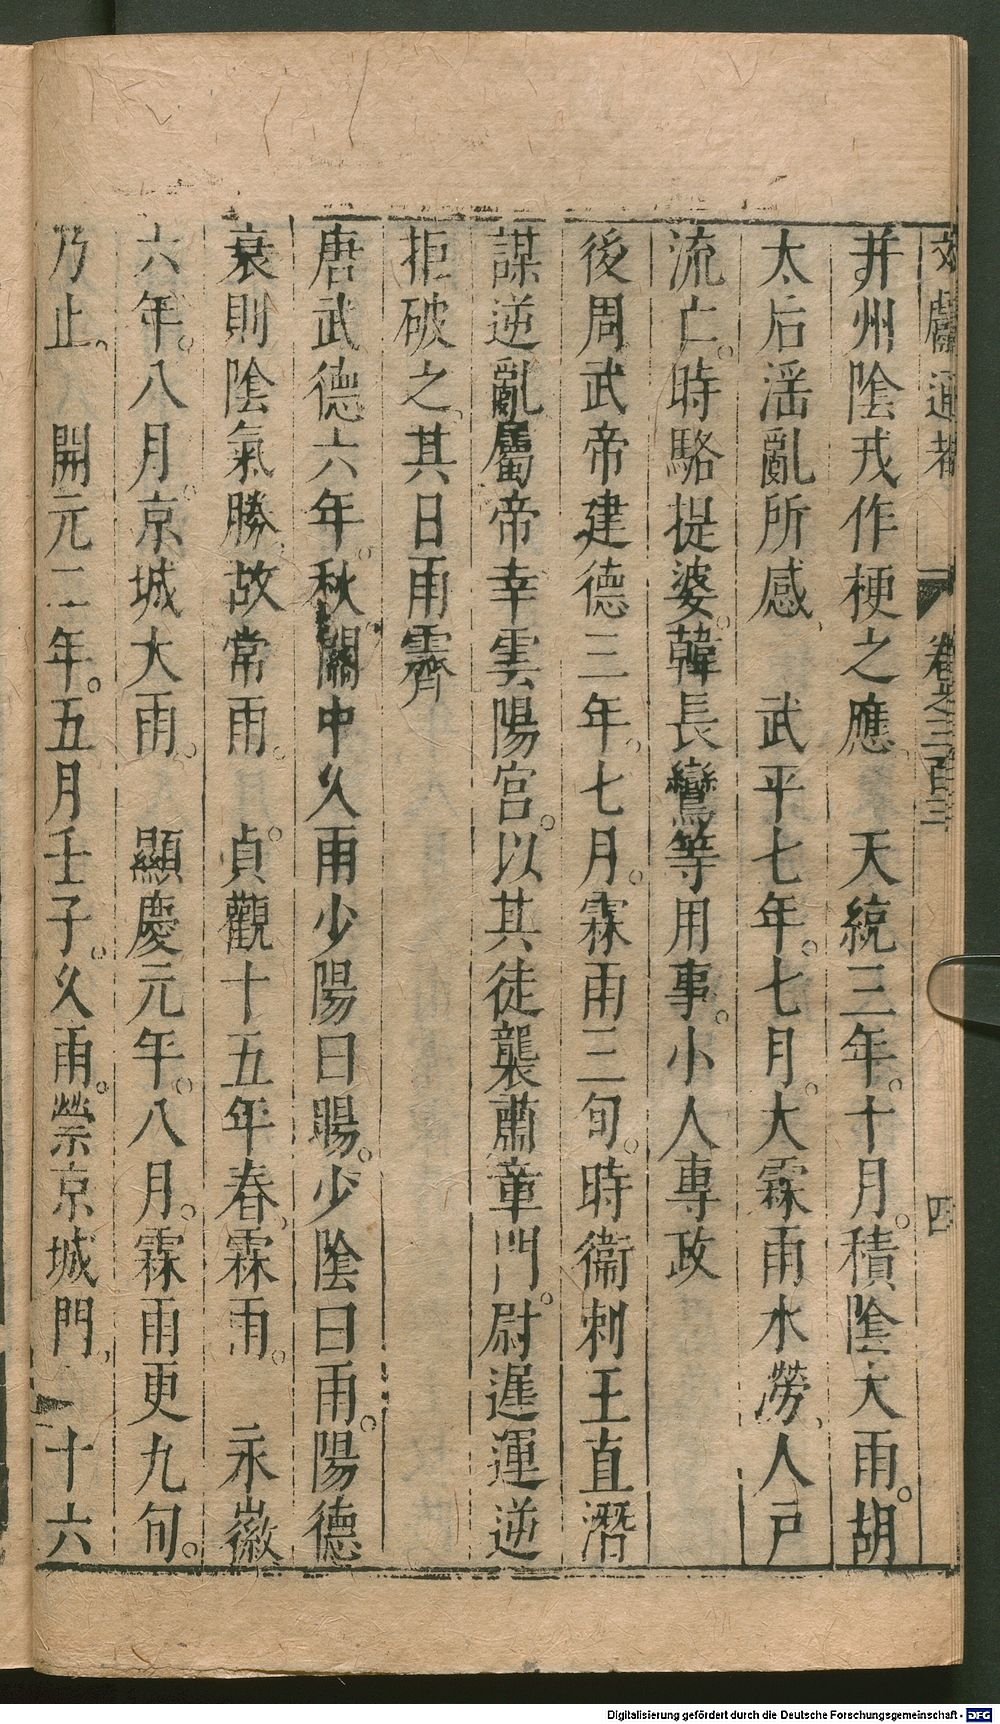 文獻通考 卷之三百三 四
并州陰戎作梗之應 天統三年。十月。積陰大雨。胡
太后淫亂所感、 武平七年。七月。大霖雨水澇、人戸
流亡。時駱提婆。韓長鸞等用事。小人專政
後周武帝建德三年。七月。霖雨三旬。時衞剌王直潛
謀逆亂屬帝幸雲陽宮。以其徒襲肅章門。尉遲運逆
拒破之、其日雨霽
唐武德六年。秋。關中久雨少陽曰暘。少陰曰雨。陽德
衰則陰氣勝、故常雨。 貞觀十五年春、霖雨。 永徽
六年。八月。京城大雨。 顯慶元年。八月。霖雨更九旬。
乃止、 開元二年。五月壬子。久雨。禜京城門、 十六
Digitalisierung gefördert durch die Deutsche Forschungsgemeinschaft - DFG